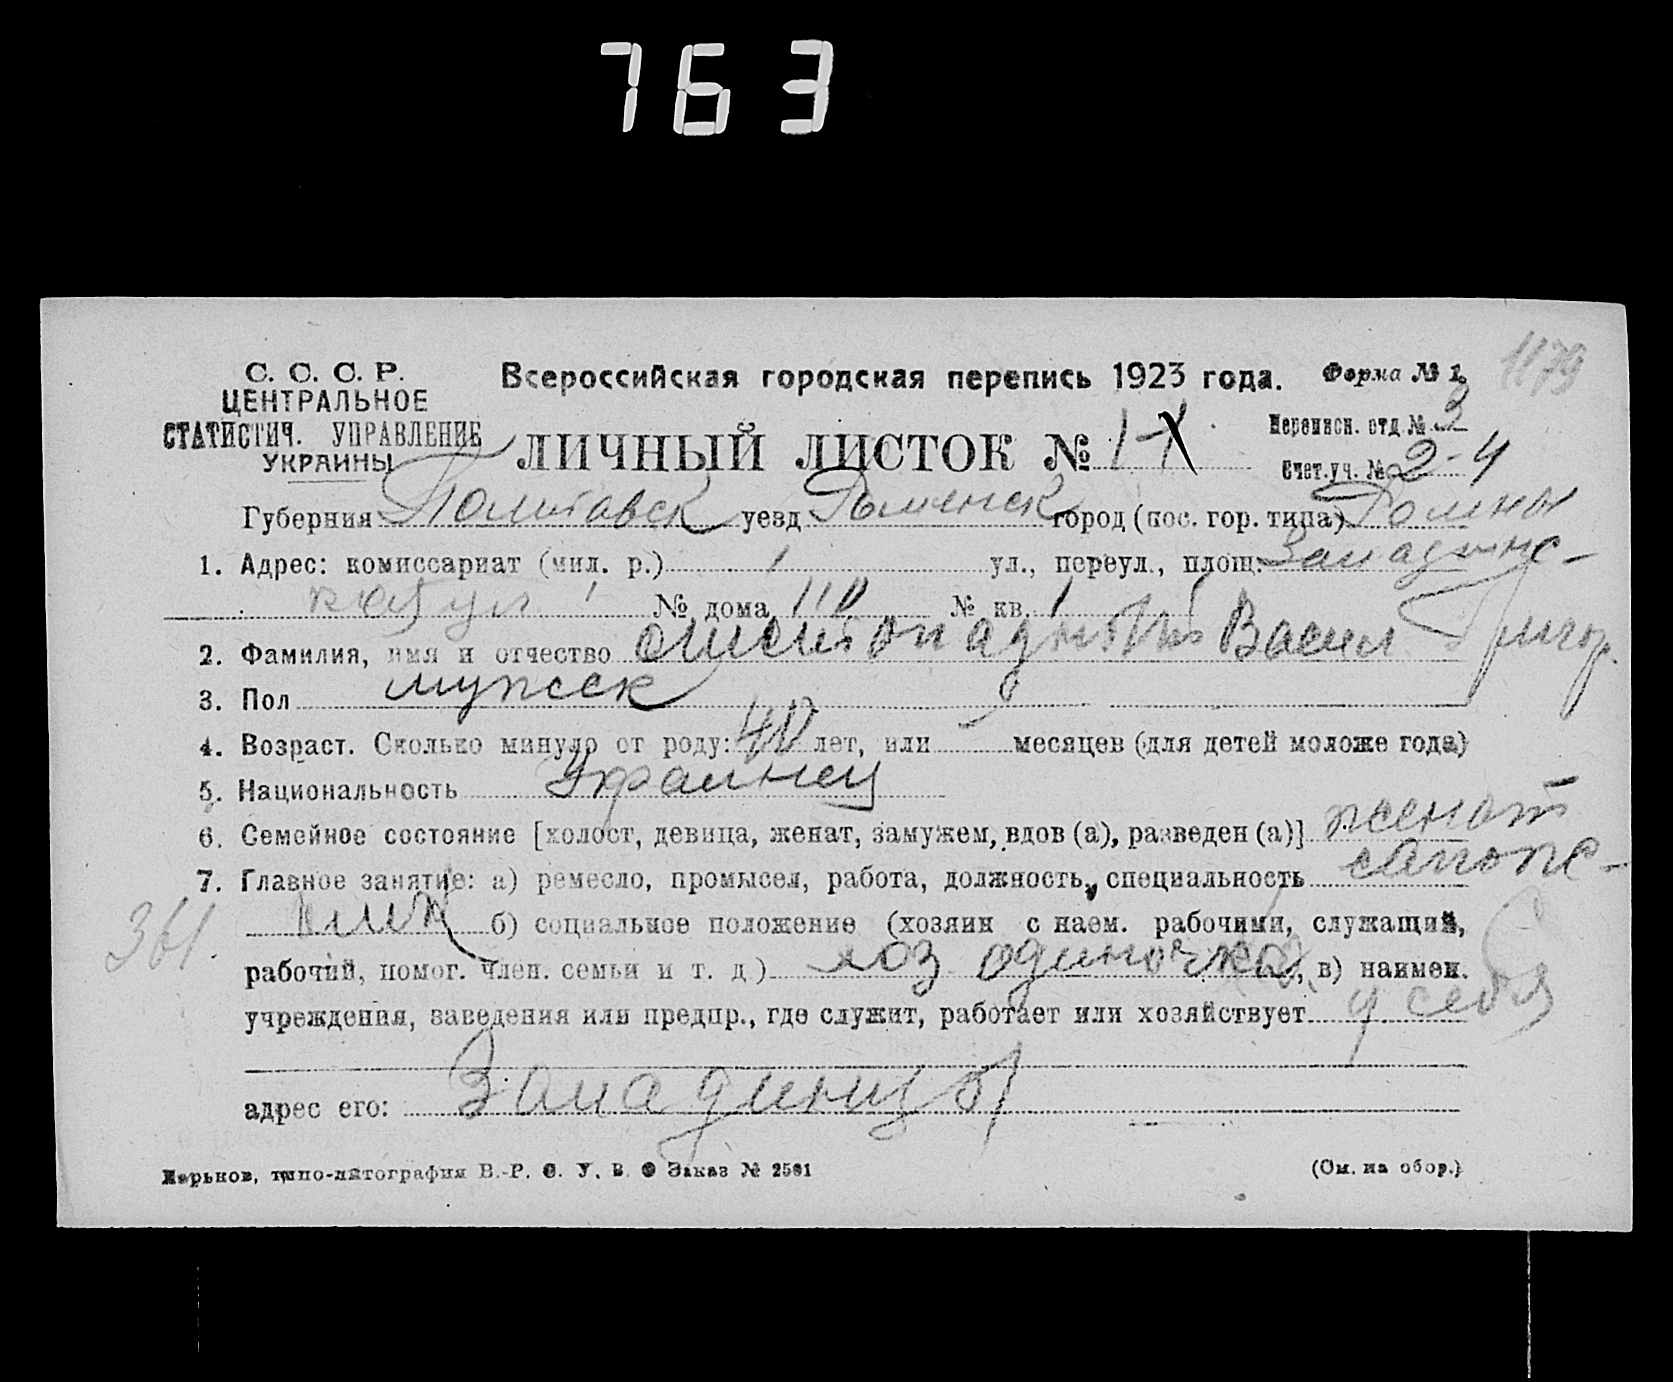 763
1179
С. С. С. Р.
ЦЕНТРАЛЬНОЕ
СТАТИСТИЧ. УПРАВЛЕНИЕ
УКРАИНЫ
Всероссийская городская перепись 1923 года.
Форма № 1.
ЛИЧНЫЙ ЛИСТОК № 1-
Переписн. отд. № 3
Счет. уч. № 2-4
Губерния Полтавск уезд Роменск город (пос. гор. типа) Ромны
1. Адрес: комиссариат (мил. р.) 1 ул., переул., площ.
№ дома 110 № кв. 1
2. Фамилия, имя и отчество Васил Григор.
3. Пол мужсек
4. Возраст. Сколько минуло от роду: 40 лет, или месяцев (для детей моложе года)
5. Национальность Украинец
6. Семейное состояние [холост, девица, женат, замужем, вдов (а), разведен (а)] женат
7. Главное занятие: а) ремесло, промысел, работа, должность, специальность сапож-
361. ник б) социальное положение (хозяин с наем. рабочими, служащий,
рабочий, помог. член. семьи и т. д.) хоз одиночка, в) наимен.
учреждения, заведения или предпр., где служит, работает или хозяйствует у себя
адрес его:
Харьков, типо-литография В.-Р. С. У. В. О Заказ № 2581
(См. на обор.)